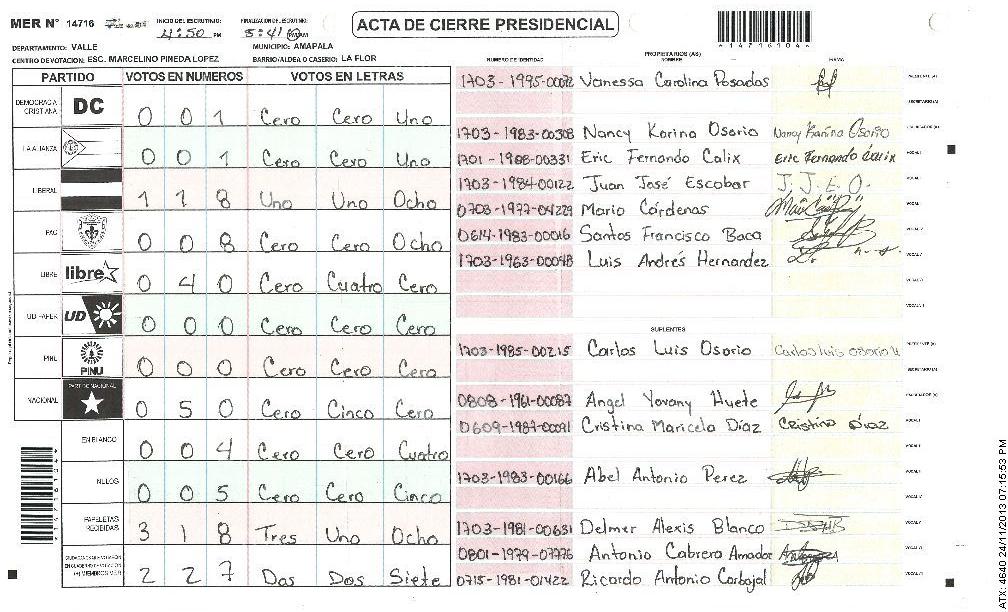 MER N° 14716 INICIO DEL ESCRUTINIO: 4:50 PM FINALIZACION DEL ESCRUTINIO: 5:41 ACTA DE CIERRE PRESIDENCIAL
DEPARTAMENTO: VALLE MUNICIPIO: AMAPALA
CENTRO DE VOTACION: ESC. MARCELINO PINEDA LOPEZ BARRIO/ALDEA O CASERIO: LA FLOR
PARTIDO VOTOS EN NUMEROS VOTOS EN LETRAS
DEMOCRACIA CRISTIANA DC 0 0 1 Cero Cero Uno
LA ALIANZA 0 0 1 Cero Cero Uno
LIBERAL 1 1 8 Uno Uno Ocho
PAC 0 0 8 Cero Cero Ocho
LIBRE libre 0 4 0 Cero Cuatro Cero
UD FAPER UD 0 0 0 Cero Cero Cero
PINU PINU 0 0 0 Cero Cero Cero
NACIONAL PARTIDO NACIONAL 0 5 0 Cero Cinco Cero
EN BLANCO 0 0 4 Cero Cero Cuatro
NULOS 0 0 5 Cero Cero Cinco
PAPELETAS RECIBIDAS 3 1 8 Tres Uno Ocho
2 2 7 Dos Dos Siete
NUMERO DE IDENTIDAD PROPIETARIOS (AS) NOMBRE FIRMA
1703-1995-00072 Vanessa Carolina Posadas
1703-1983-00308 Nancy Karina Osorio Nancy Karina Osorio
1701-1988-00331 Eric Fernando Calix Eric Fernando Calix
1703-1984-00122 Juan José Escobar J. J. E. O.
0703-1977-04229 Mario Cárdenas
0614-1983-00016 Santos Francisco Baca
1703-1963-00048 Luis Andrés Hernandez
SUPLENTES
1703-1985-00215 Carlos Luis Osorio Carlos luis osorio
0808-1961-00087 Angel Yovany Huete
0609-1987-00091 Cristina Maricela Díaz Cristina Díaz
1703-1983-00166 Abel Antonio Perez
1703-1981-00631 Delmer Alexis Blanco
0801-1979-07776 Antonio Cabrera Amador
0715-1981-01422 Ricardo Antonio Carbajal
ATX: 4640 24/11/2013 07:15:53 PM